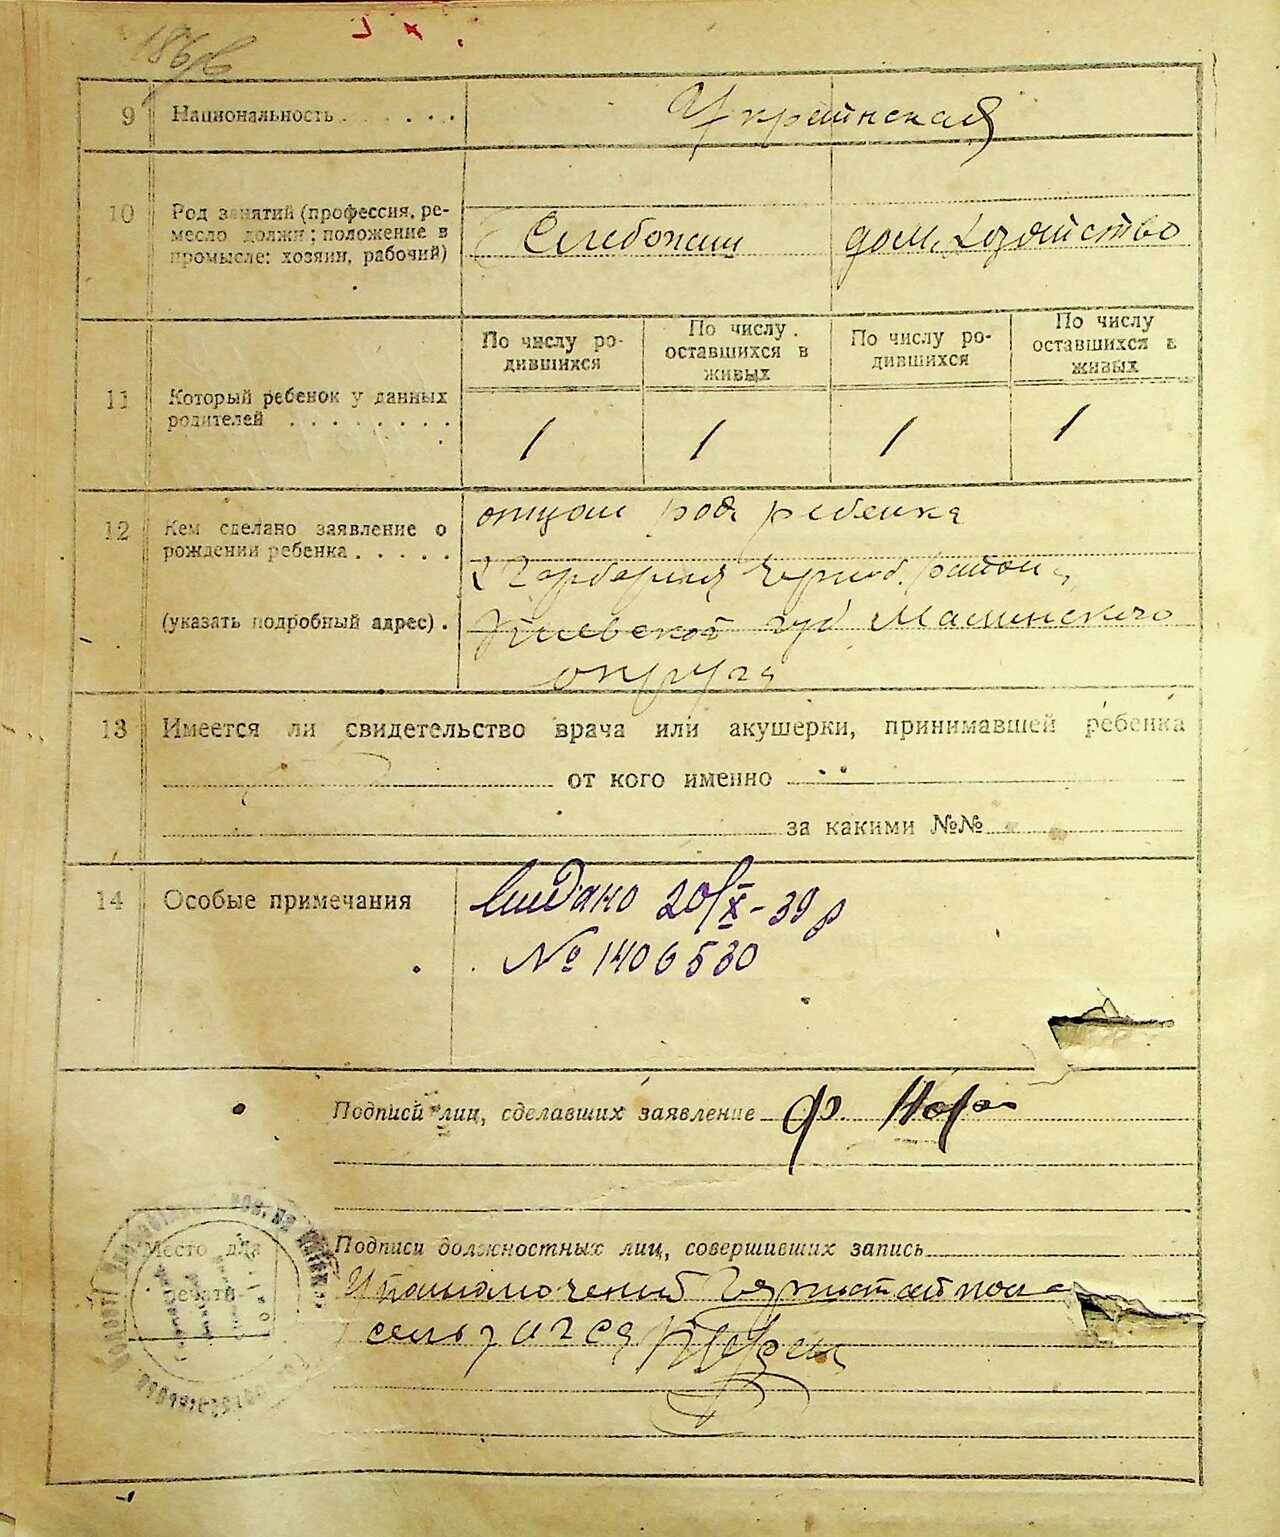 9 Национальность . . . . . . Украинская
10 Род занятий (профессия, ре-
месло должн; положение в
промысле: хозяин, рабочий)
дом. хозяйство
По числу ро-
дившихся
По числу
оставшихся в
живых
По числу ро-
дившихся
По числу
оставшихся в
живых
11 Который ребенок у данных
родителей . . . . . . . .
1 1 1 1
12 Кем сделано заявление о
рождении ребенка . . . . .
отцом род ребенка
района
(указать подробный адрес) . Киевской губ
округа
13 Имеется ли свидетельство врача или акушерки, принимавшей ребенка
от кого именно
за какими №№
14 Особые примечания
20/X-39 р
№ 1406530
Подписи лиц, сделавших заявление Ф.
Место для
печати
Подписи должностных лиц, совершивших запись